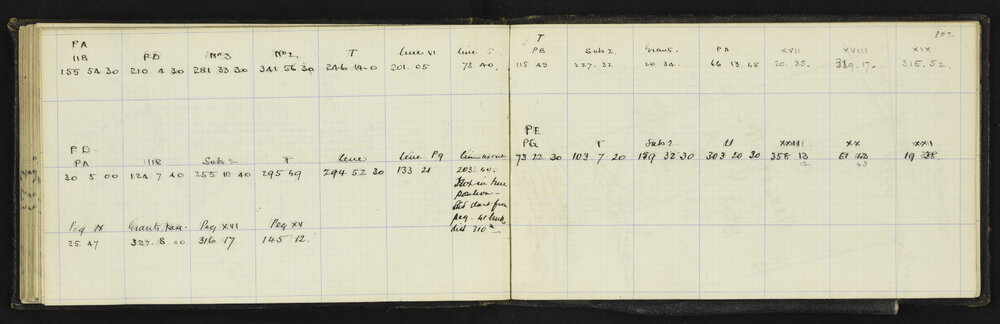 PA
11B PD No 3 No 2 T line VI line 5
155 54 30 210 4 30 281 33 30 341 56 30 246 14 0 201.05 73 40.
PD
PA 11B Subs 2 T line line Pg
30 5 00 124 7 40 255 10 40 295 49 294 52 30 133 21 203. 40.
Box in true
position
Peg IX Grants Peg XVI Peg XV
25.47 327. 8. 00 316. 17 145. 12.
dist 310
102
T
PB Subs 2 Grants. PA XVII XVIII XIX
115 49 227. 32 20 34. 66 13. 45 20. 35. 319. 17. 315. 52.
PE
PG T Subs 2 U XXIII XX XXI
73 22 30 103 7 20 159 32 30 303 20 30 358 13 61 43 19 38.
12 43